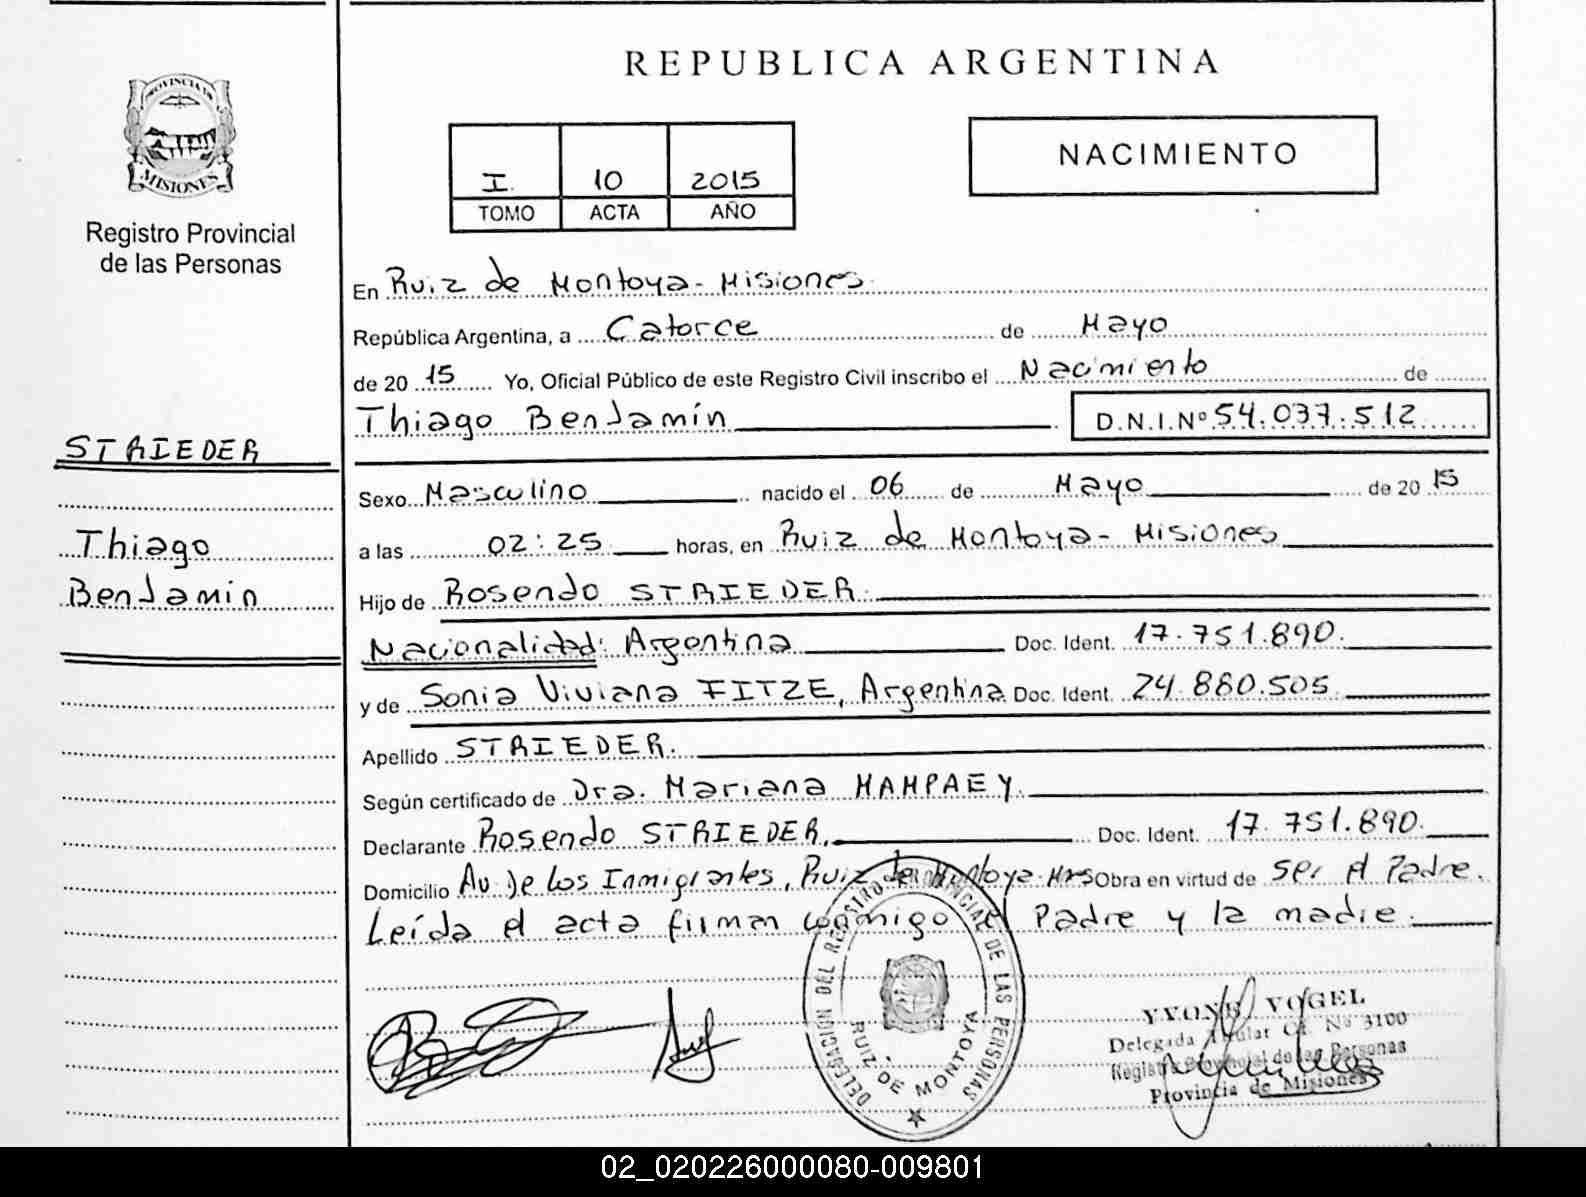 REPUBLICA ARGENTINA
PROVINCIA DE
MISIONES
Registro Provincial
de las Personas
I. 10 2015
TOMO ACTA AÑO
NACIMIENTO
En Ruiz de Montoya - Misiones
República Argentina, a Catorce de Mayo
de 20 15 Yo, Oficial Público de este Registro Civil inscribo el Nacimiento de
Thiago Benjamín D.N.I.Nº 54.037.512
STRIEDER
Sexo Masculino nacido el 06 de Mayo de 20 15
Thiago
a las 02:25 horas, en Ruiz de Montoya - Misiones
Benjamin
Hijo de Rosendo STRIEDER.
Nacionalidad: Argentina Doc. Ident. 17.751.890.
y de Sonia Viviana FITZE, Argentina Doc. Ident. 24.880.505
Apellido STRIEDER.
Según certificado de Dra. Mariana MAMPAEY.
Declarante Rosendo STRIEDER, Doc. Ident. 17.751.890.
Domicilio Av. de los Inmigrantes, Ruiz de Montoya Mns Obra en virtud de ser el Padre.
Leída el acta firman conmigo el Padre y la madre.
DELEGACION DEL REGISTRO PROVINCIAL DE LAS PERSONAS
RUIZ DE MONTOYA
YVONE VOGEL
Delegada Titular Of. Nº 3100
Registro Provincial de las Personas
Provincia de Misiones
02_020226000080-009801